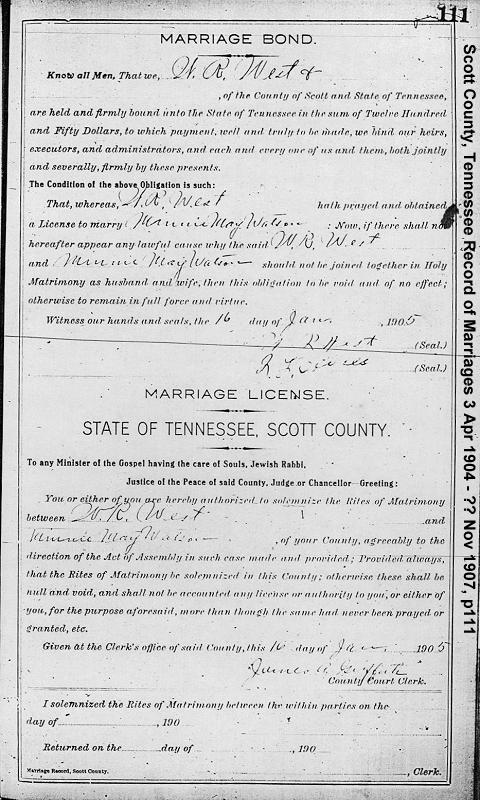 111
MARRIAGE BOND.
Know all Men, That we, W. R. West &
, of the County of Scott and State of Tennessee,
are held and firmly bound unto the State of Tennessee in the sum of Twelve Hundred
and Fifty Dollars, to which payment, well and truly to be made, we bind our heirs,
executors, and administrators, and each and every one of us and them, both jointly
and severally, firmly by these presents.
The Condition of the above Obligation is such:
That, whereas, W. R. West hath prayed and obtained
a License to marry Minnie May Watson : Now, if there shall not
hereafter appear any lawful cause why the said W. R. West
and Minnie May Watson should not be joined together in Holy
Matrimony as husband and wife, then this obligation to be void and of no effect;
otherwise to remain in full force and virtue.
Witness our hands and seals, the 16 day of Jan , 1905
W R West (Seal.)
(Seal.)
MARRIAGE LICENSE.
STATE OF TENNESSEE, SCOTT COUNTY.
To any Minister of the Gospel having the care of Souls, Jewish Rabbi,
Justice of the Peace of said County, Judge or Chancellor—Greeting:
You or either of you are hereby authorized to solemnize the Rites of Matrimony
between W. R. West and
Minnie May Watson , of your County, agreeably to the
direction of the Act of Assembly in such case made and provided; Provided always,
that the Rites of Matrimony be solemnized in this County; otherwise these shall be
null and void, and shall not be accounted any license or authority to you, or either of
you, for the purpose aforesaid, more than though the same had never been prayed or
granted, etc.
Given at the Clerk's office of said County, this 16 day of Jan , 1905
James A Griffith
County Court Clerk.
I solemnized the Rites of Matrimony between the within parties on the
day of , 190
Returned on the day of , 190
Marriage Record, Scott County. , Clerk.
Scott County, Tennessee Record of Marriages 3 Apr 1904 - ?? Nov 1907, p111